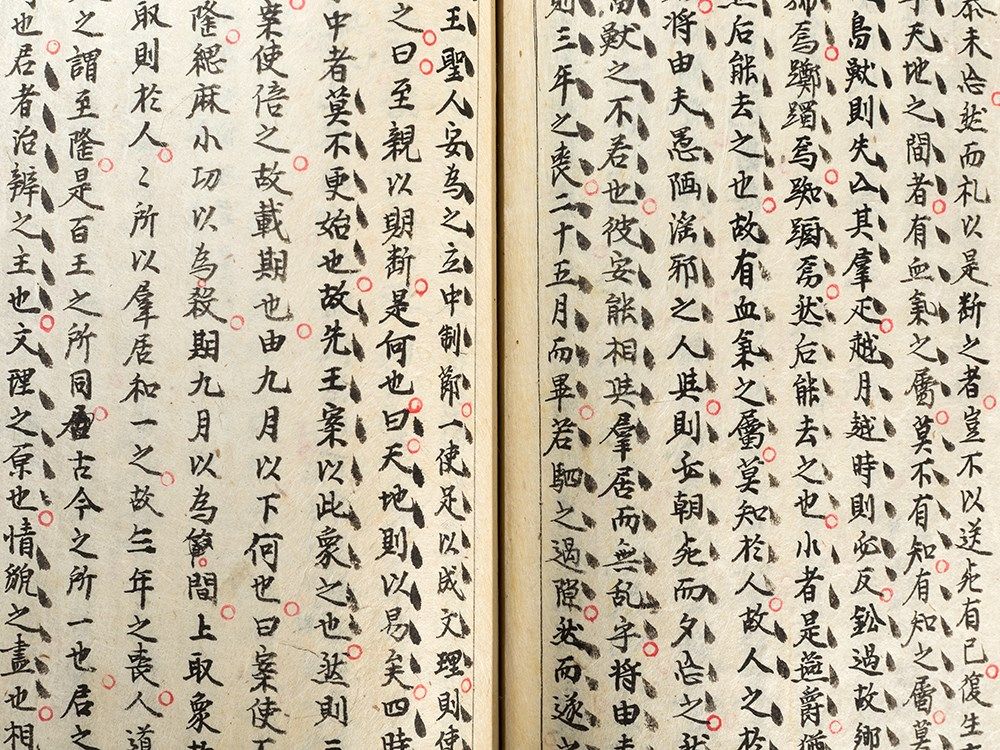 未忘然而礼以是断之者豈不以送死有已復生
乎天地之間者有血氣之属莫不有知有知之属莫
鳥獣則失亾其羣疋越月越時則必反鈆過故鄉
焉躑躅焉踟蹰焉然后能去之也小者是燕爵猶
然后能去之也故有血氣之属莫知於人故人之於
将由夫愚陋淫邪之人與則彼朝死而夕忘之然
獣之不若也彼安能相與羣居而無乱乎将由夫
則三年之喪二十五月而畢若駟之過隙然而遂之
王聖人安為之立中制節一使足以成文理則使
之曰至親以期断是何也曰天地則以易矣四時
中者莫不更始也故先王案以此象之也然則三
案使倍之故載期也由九月以下何也曰案使不
隆緦麻小功以為殺期九月以為間上取象
取則於人〻所以羣居和一之故三年之喪人道
之謂至隆是百王之所同古今之所一也君之
也君者治辨之主也文理之原也情貌之盡也相